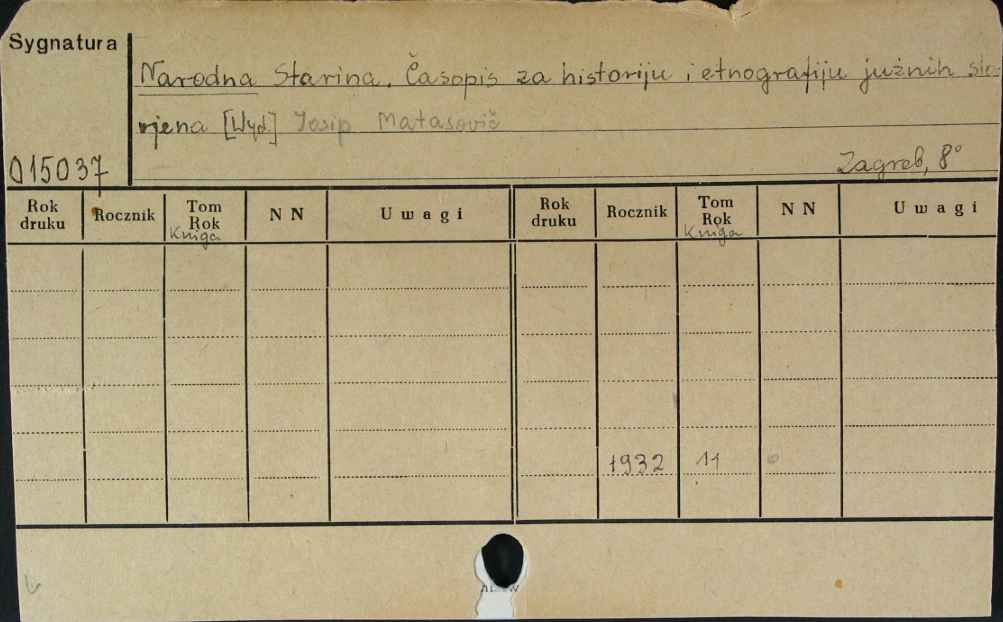 Sygnatura
Narodna Starina. Časopis za historiju i etnografiju južnih slo-
vjena [Wyd.] Josip Matasović
015037
Zagreb, 8°
Rok druku Rocznik Tom Rok Kniga N N Uwagi Rok druku Rocznik Tom Rok Kniga N N Uwagi
1932 11